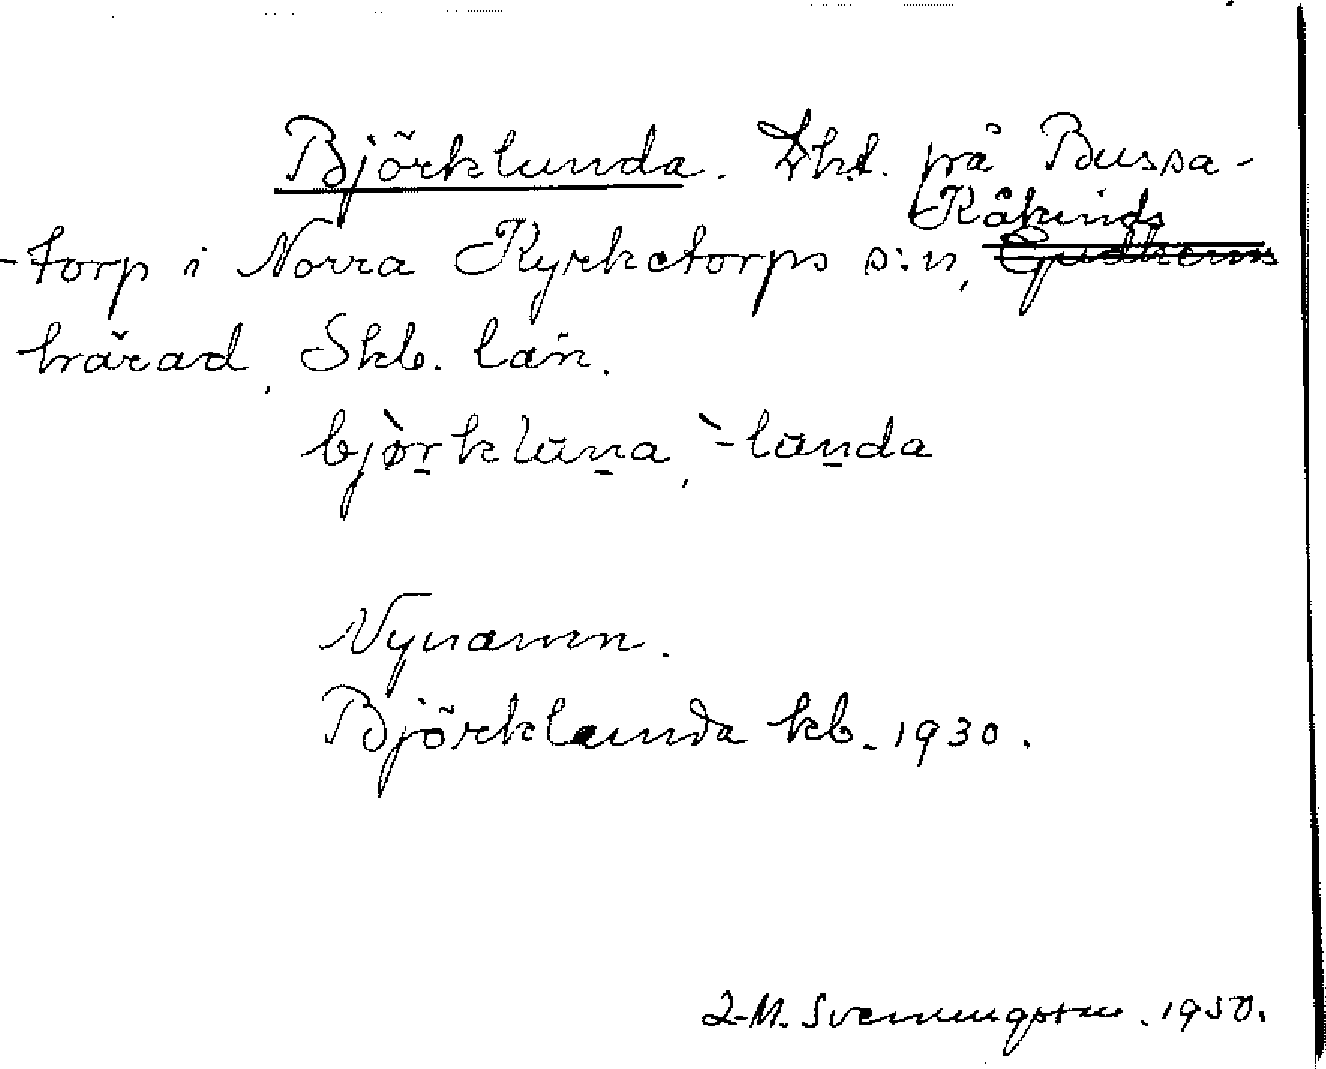 Björklunda. Lht. på Bussa-
Kåkinds
-torp i Norra Kyrketorps s:n, Gudhems
härad, Skb. län.
bjò̱rklūṉa, `-lūṉda
Nynamn.
Björklunda kb. 1930.
I-M. Svenningsson. 1950.